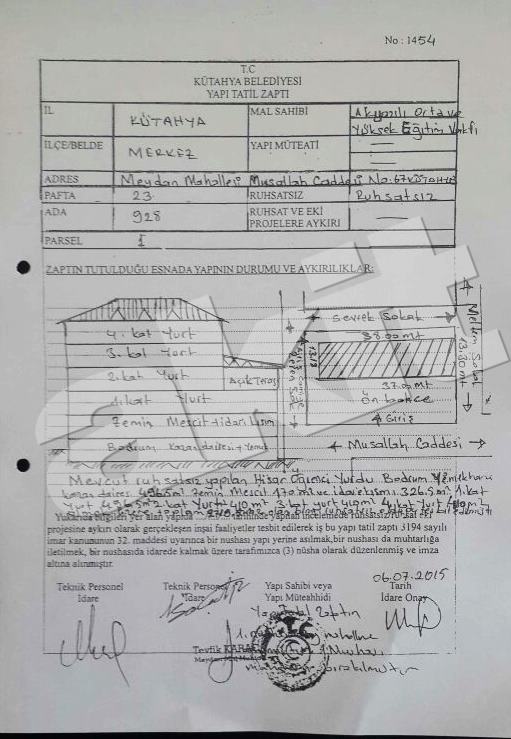 No: 1454
T.C
KÜTAHYA BELEDİYESİ
YAPI TATİL ZAPTI
İL KÜTAHYA MAL SAHİBİ Akyazılı Orta ve
Yüksek Eğitim Vakfı
İLÇE/BELDE MERKEZ YAPI MÜTEATİ
ADRES Meydan Mahallesi Musallah Caddesi No:67 KÜTAHYA
PAFTA 23 RUHSATSIZ Ruhsatsız
ADA 928 RUHSAT VE EKİ
PROJELERE AYKIRI
PARSEL 1
ZAPTIN TUTULDUĞU ESNADA YAPININ DURUMU VE AYKIRILIKLAR:
Sevrek Sokak
4. kat Yurt
38.00 mt
3. kat Yurt
2. kat Yurt
Açık Teras
1. kat Yurt
37.00 mt
ön bahçe
Zemin Mescit + idari kısım
Giriş
Bodrum Kazan dairesi + Yemek
Musallah Caddesi
Meltem Sokak
13.30 mt
Mevcut ruhsatsız yapılan Hisar Öğrenci Yurdu Bodrum Yemekhane
kazan dairesi 496.5m² Zemin Mescit 170 m² ve idare kısmı 326.5m² 1.kat
Yurt 496.5m² 2.kat Yurt 410 m² 3.kat Yurt 410m² 4.kat Yurt 410m²
Yukarıda bilgileri yer alan yapıda
projesine aykırı olarak gerçekleşen inşai faaliyetler tesbit edilerek iş bu yapı tatil zaptı 3194 sayılı
imar kanununun 32. maddesi uyarınca bir nushası yapı yerine asılmak,bir nushası da muhtarlığa
iletilmek, bir nushasıda idarede kalmak üzere tarafımızca (3) nüsha olarak düzenlenmiş ve imza
altına alınmıştır.
06.07.2015
Teknik Personel Teknik Personel Yapı Sahibi veya Tarih
İdare İdare Yapı Müteahhidi İdare Onay
Yapı Tatil Zaptın
Tevfik
bırakılmıştır